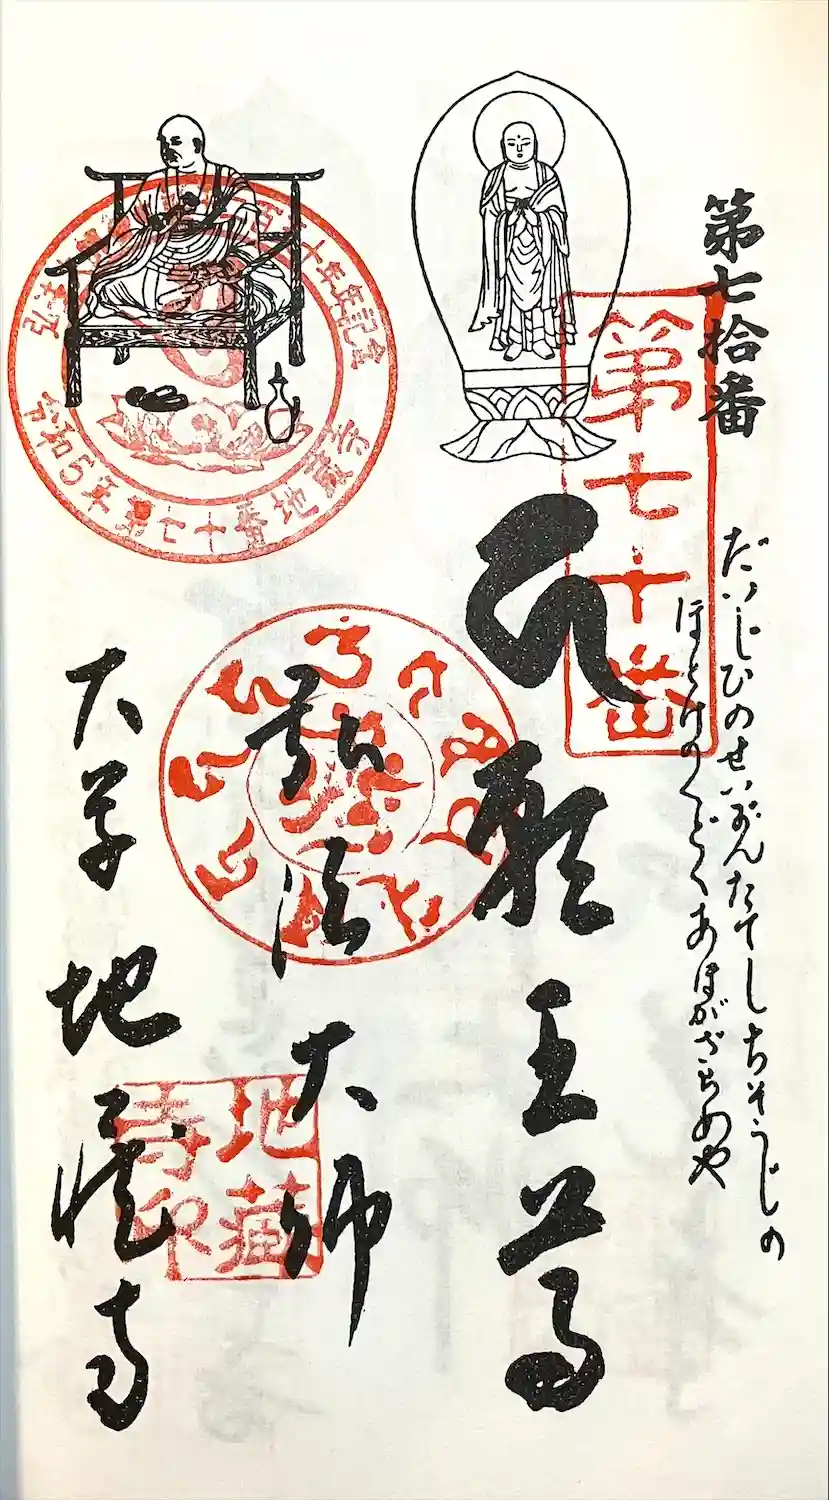 第七拾番
だいじひのせいがんたてしちそうじの
ほとけのくどくあほがざらめや
第七十番
願王尊
弘法大師
大草 地蔵寺
地藏寺印
十年記念
令和5年 第七十番 地蔵寺